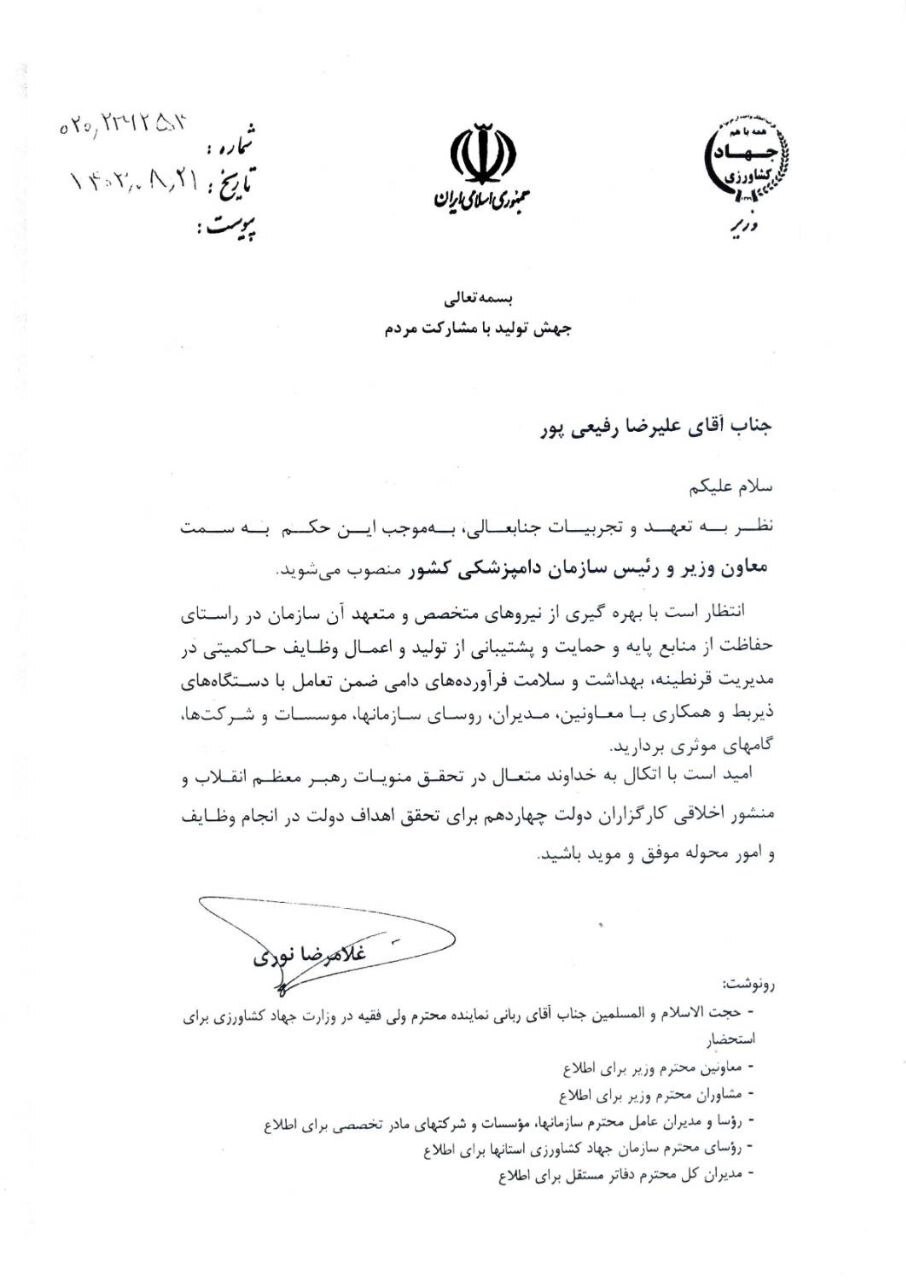 همه با هم
جهاد
کشاورزی
وزیر
جمهوری اسلامی ایران
شماره :
تاریخ : ۱۴۰۳,۰۸,۲۱
پیوست :
بسمه تعالی
جهش تولید با مشارکت مردم
جناب آقای علیرضا رفیعی پور
سلام علیکم
نظر به تعهد و تجربیات جنابعالی، به‌موجب این حکم به سمت
معاون وزیر و رئیس سازمان دامپزشکی کشور منصوب می‌شوید.
انتظار است با بهره گیری از نیروهای متخصص و متعهد آن سازمان در راستای
حفاظت از منابع پایه و حمایت و پشتیبانی از تولید و اعمال وظایف حاکمیتی در
مدیریت قرنطینه، بهداشت و سلامت فرآورده‌های دامی ضمن تعامل با دستگاه‌های
ذیربط و همکاری با معاونین، مدیران، روسای سازمانها، موسسات و شرکت‌ها،
گامهای موثری بردارید.
امید است با اتکال به خداوند متعال در تحقق منویات رهبر معظم انقلاب و
منشور اخلاقی کارگزاران دولت چهاردهم برای تحقق اهداف دولت در انجام وظایف
و امور محوله موفق و موید باشید.
غلامرضا نوری
رونوشت:
- حجت الاسلام و المسلمین جناب آقای ربانی نماینده محترم ولی فقیه در وزارت جهاد کشاورزی برای
استحضار
- معاونین محترم وزیر برای اطلاع
- مشاوران محترم وزیر برای اطلاع
- رؤسا و مدیران عامل محترم سازمانها، مؤسسات و شرکتهای مادر تخصصی برای اطلاع
- رؤسای محترم سازمان جهاد کشاورزی استانها برای اطلاع
- مدیران کل محترم دفاتر مستقل برای اطلاع